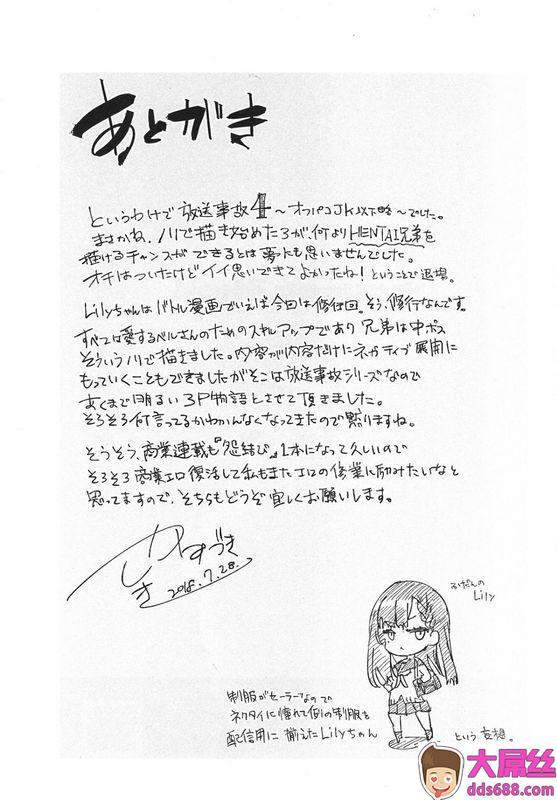 あとがき
というわけで放送事故4〜オフパコJK以下略〜でした。
まさかね、ノリで描き始めた3が、何よりHENTAI兄弟を
描けるチャンスができるとは夢にも思いませんでした。
オチはついたけどイイ思いできてよかったね!ということで退場。
Lilyちゃんはバトル漫画でいえば今回は修行回。そう、修行なんです。
すべては愛するベルさんのためのスキルアップであり兄弟は中ボス
そういうノリで描きました。内容が内容だけにネガティブ展開に
もっていくこともできましたがそこは放送事故シリーズなので
あくまで明るい3P物語とさせて頂きました。
そろそろ何言ってるかわかんなくなってきたので黙りますね。
そうそう、商業連載も『怨結び』1本になって久しいので
そろそろ商業エロ復活して私もまたエロの修業に励みたいなと
思ってますので、そちらもどうぞ宜しくお願いします。
かづき
しき
2018.7.28.
ふだんの
Lily
制服がセーラーなので
ネクタイに憧れて別の制服を
配信用に揃えたLilyちゃん
という妄想。
大屌丝
dds688.com